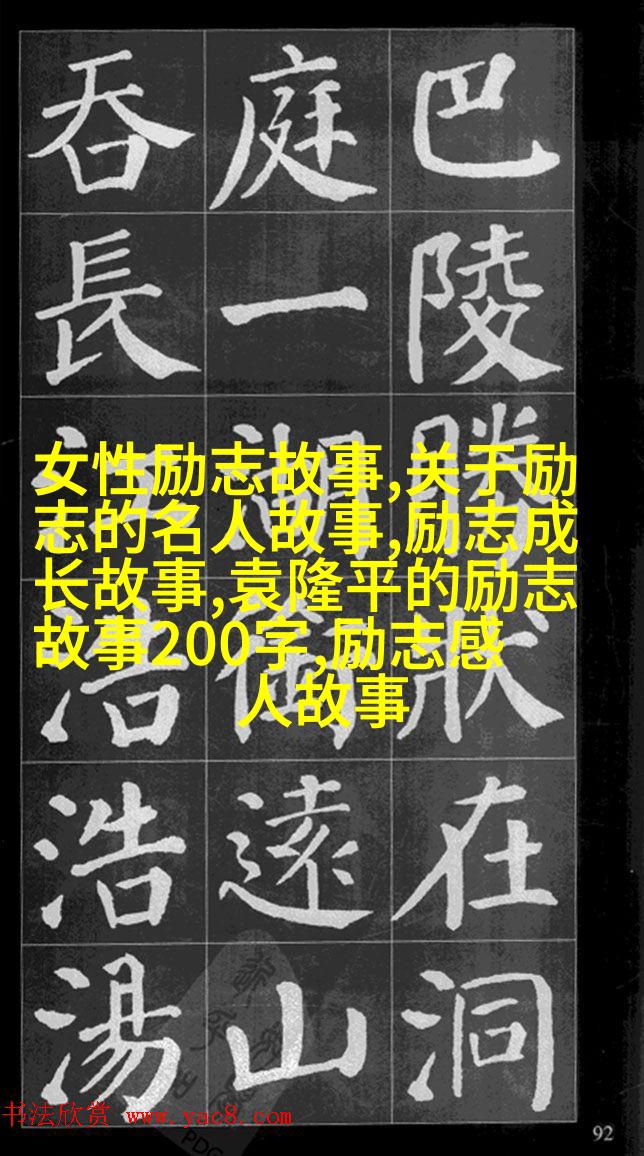 巴陵勝狀在洞
庭一湖銜遠山
吞長江浩浩湯
女性励志故事,关于励
志的名人故事,励志成
长故事,袁隆平的励志
故事200字,励志感
人故事
书法欣赏 www.yac8.com
PDG
92